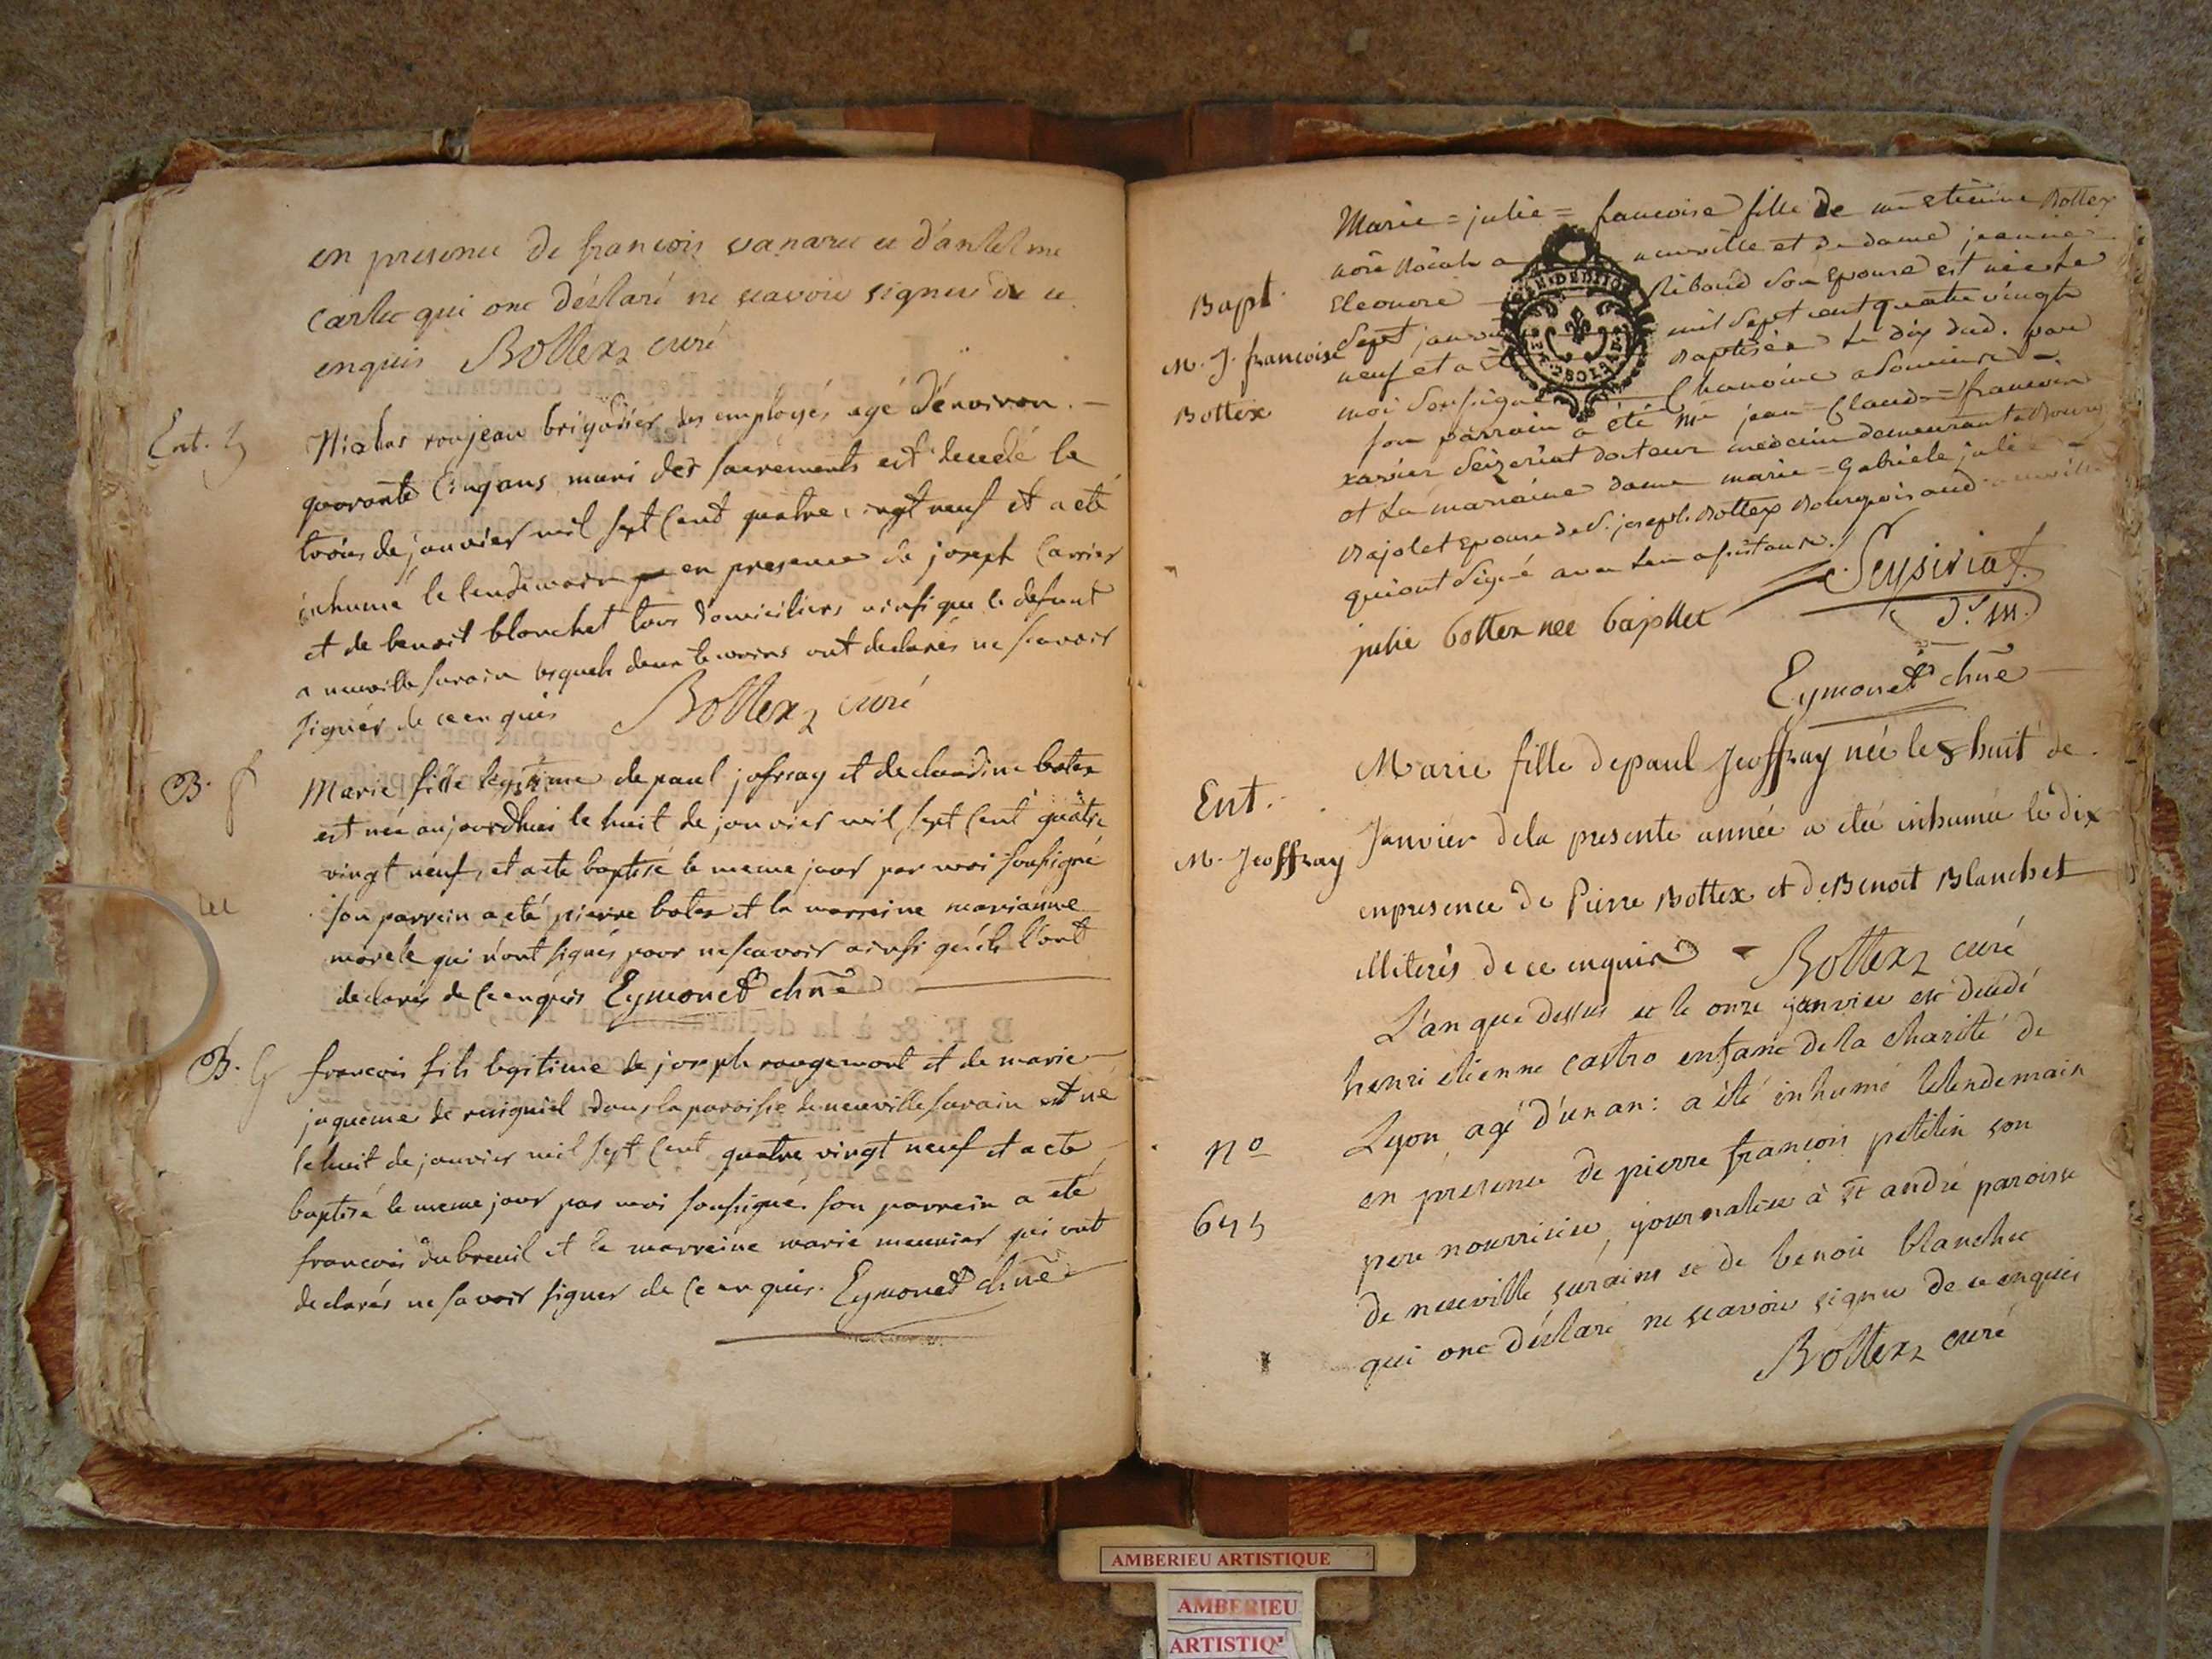 en presence de francois vanaru et d'antelme
carlec qui onc déclaré ne scavoir signer de ce
enquis Bottex curé
Ent.
Nicolas roujeau brigadier des employés agé d'environ
quarante Cinq ans muni des sacrements est decedé le
trois de janvier mil sept Cent quatre vingt neuf et a eté
inhumé le lendemain en presence de joseph Carrier
et de benoit blanchet tous domiciliers ainsi que le defunt
a neuville surain lesquels deux temoins ont declarés ne scavoir
signer de ce enquis Bottex curé
B.
Marie fille legitime de paul jofray et de claudine botex
est née aujourdhui le huit de janvier mil sept Cent quatre
vingt neuf, et a ete baptisé le meme jour par moi soussigné
son parrein a eté pierre botex et la marreine marianne
morele qui n'ont signés pour ne scavoir ainsi qu'ils l'ont
declarés de Ce enquis Eymonet chñe
B.
francois fils legitime de joseph rougemont et de marie
jaqueme de rusiguiel dans la paroisse de neuville surain est né
le huit de janvier mil sept Cent quatre vingt neuf et a ete
baptisé le meme jour par moi soussigné. son parrein a eté
francois dubreuil et la marreine marie meunier qui ont
declarés ne savoir signer de Ce enquis. Eymonet chñe
Marie = julie = francoise fille de me etienne Bottex
neuville et de dame jeanne
Bapt.
Eleonore Ribaud son Epouse est née le
Sept janvier mil Sept cent quatre vingt
M. J. francoise
neuf et a été Baptisée Le dix dud. par
Bottex
moi Soussigné Chanoine
son parrain a été Mr jean = Claude = francois
xavier Seizeriat docteur medecin demeurant a Bourg
et La marraine dame marie = Gabriele julie
Bajolet Epouse de S. joseph Bottex Bourgeois aud neuville
qui ont Signé avec
julie bottex nee bajollet Seysiriat
D. M.
Eymonet chñe
Marie fille de paul Jeoffray née le 8 huit de
Ent.
M. Jeoffray
Janvier de la presente année a eté inhumée le dix
en presence de Pierre Bottex et de Benoit Blanchet
illiterés de ce enquis Bottex curé
L'an que dessus et le onze janvier est décédé
henri etienne castro enfant de la charité de
No
Lyon agé d'un an : a été inhumé le lendemain
en presence de pierre françois petitin son
645
pere nourricier, journalier à St andré paroisse
de neuville surains et de benoit blanchet
qui onc déclaré ne scavoir signer de ce enquis
Bottex curé
AMBERIEU ARTISTIQUE
AMBERIEU
ARTISTIQ